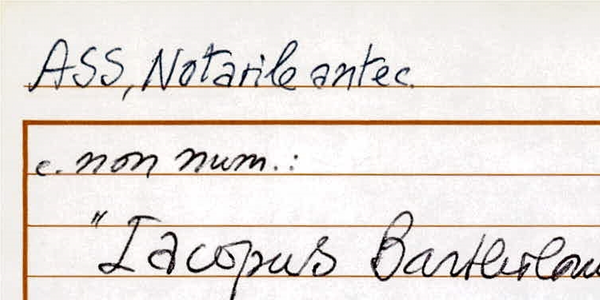 ASS, Notarile antec.
c. non num.:
"Iacopus Bartholom